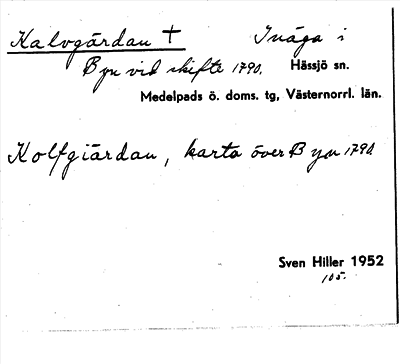 Kalvgärdan † Inäga i
Byn vid skifte 1790. Hässjö sn.
Medelpads ö. doms. tg, Västernorrl. län.
Kolfgiärdan, karta över Byn 1790
Sven Hiller 1952
105.